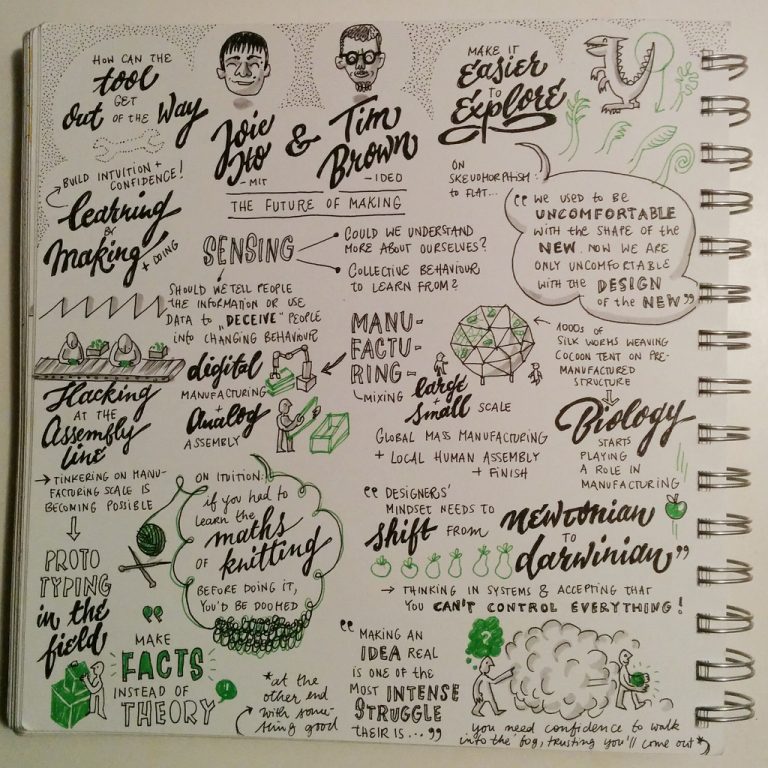 HOW CAN THE
tool
GET
Out OF THE Way
BUILD INTUITION +
CONFIDENCE!
learning
BY
Making
+ DOING
Joie
Ito
- MIT
&
Tim
Brown
- IDEO
THE FUTURE OF MAKING
MAKE IT
Easier
TO
Explore
ON
SKEUOMORPHISM:
to FLAT...
"WE USED TO BE
UNCOMFORTABLE
WITH THE SHAPE OF THE
NEW. NOW WE ARE
ONLY UNCOMFORTABLE
WITH THE DESIGN
OF THE NEW"
SENSING
• COULD WE UNDERSTAND
MORE ABOUT OURSELVES?
• COLLECTIVE BEHAVIOUR
TO LEARN FROM?
SHOULD WE TELL PEOPLE
THE INFORMATION OR USE
DATA to "DECEIVE" PEOPLE
INTO CHANGING BEHAVIOUR
Hacking
AT THE
Assembly
line
→ TINKERING ON MANU-
FACTURING SCALE IS
BECOMING POSSIBLE
PROTO
TYPING
in the
field
digital
MANUFACTURING
+
Analog
ASSEMBLY
MANU-
FACTU-
RING-
MIXING large
+
small SCALE
GLOBAL MASS MANUFACTURING
+ LOCAL HUMAN ASSEMBLY
+ FINISH
1000s OF
SILK WORMS WEAVING
COCOON TENT ON PRE-
MANUFACTURED
STRUCTURE
Biology
STARTS
PLAYING
A ROLE IN
MANUFACTURING
ON INTUITION:
if you had to
learn the
maths
OF knitting
BEFORE DOING IT,
YOU'D BE DOOMED
"DESIGNERS'
MINDSET NEEDS TO
shift FROM newtonian
TO
darwinian"
→ THINKING IN SYSTEMS & ACCEPTING THAT
YOU CAN'T CONTROL EVERYTHING!
"
MAKE
FACTS
INSTEAD OF
THEORY
!
"MAKING AN
IDEA REAL
IS ONE OF THE
MOST INTENSE
STRUGGLE
THEIR IS..."
?
you need confidence to walk
into the fog, trusting you'll come out*
*at the
other end
with some-
thing good